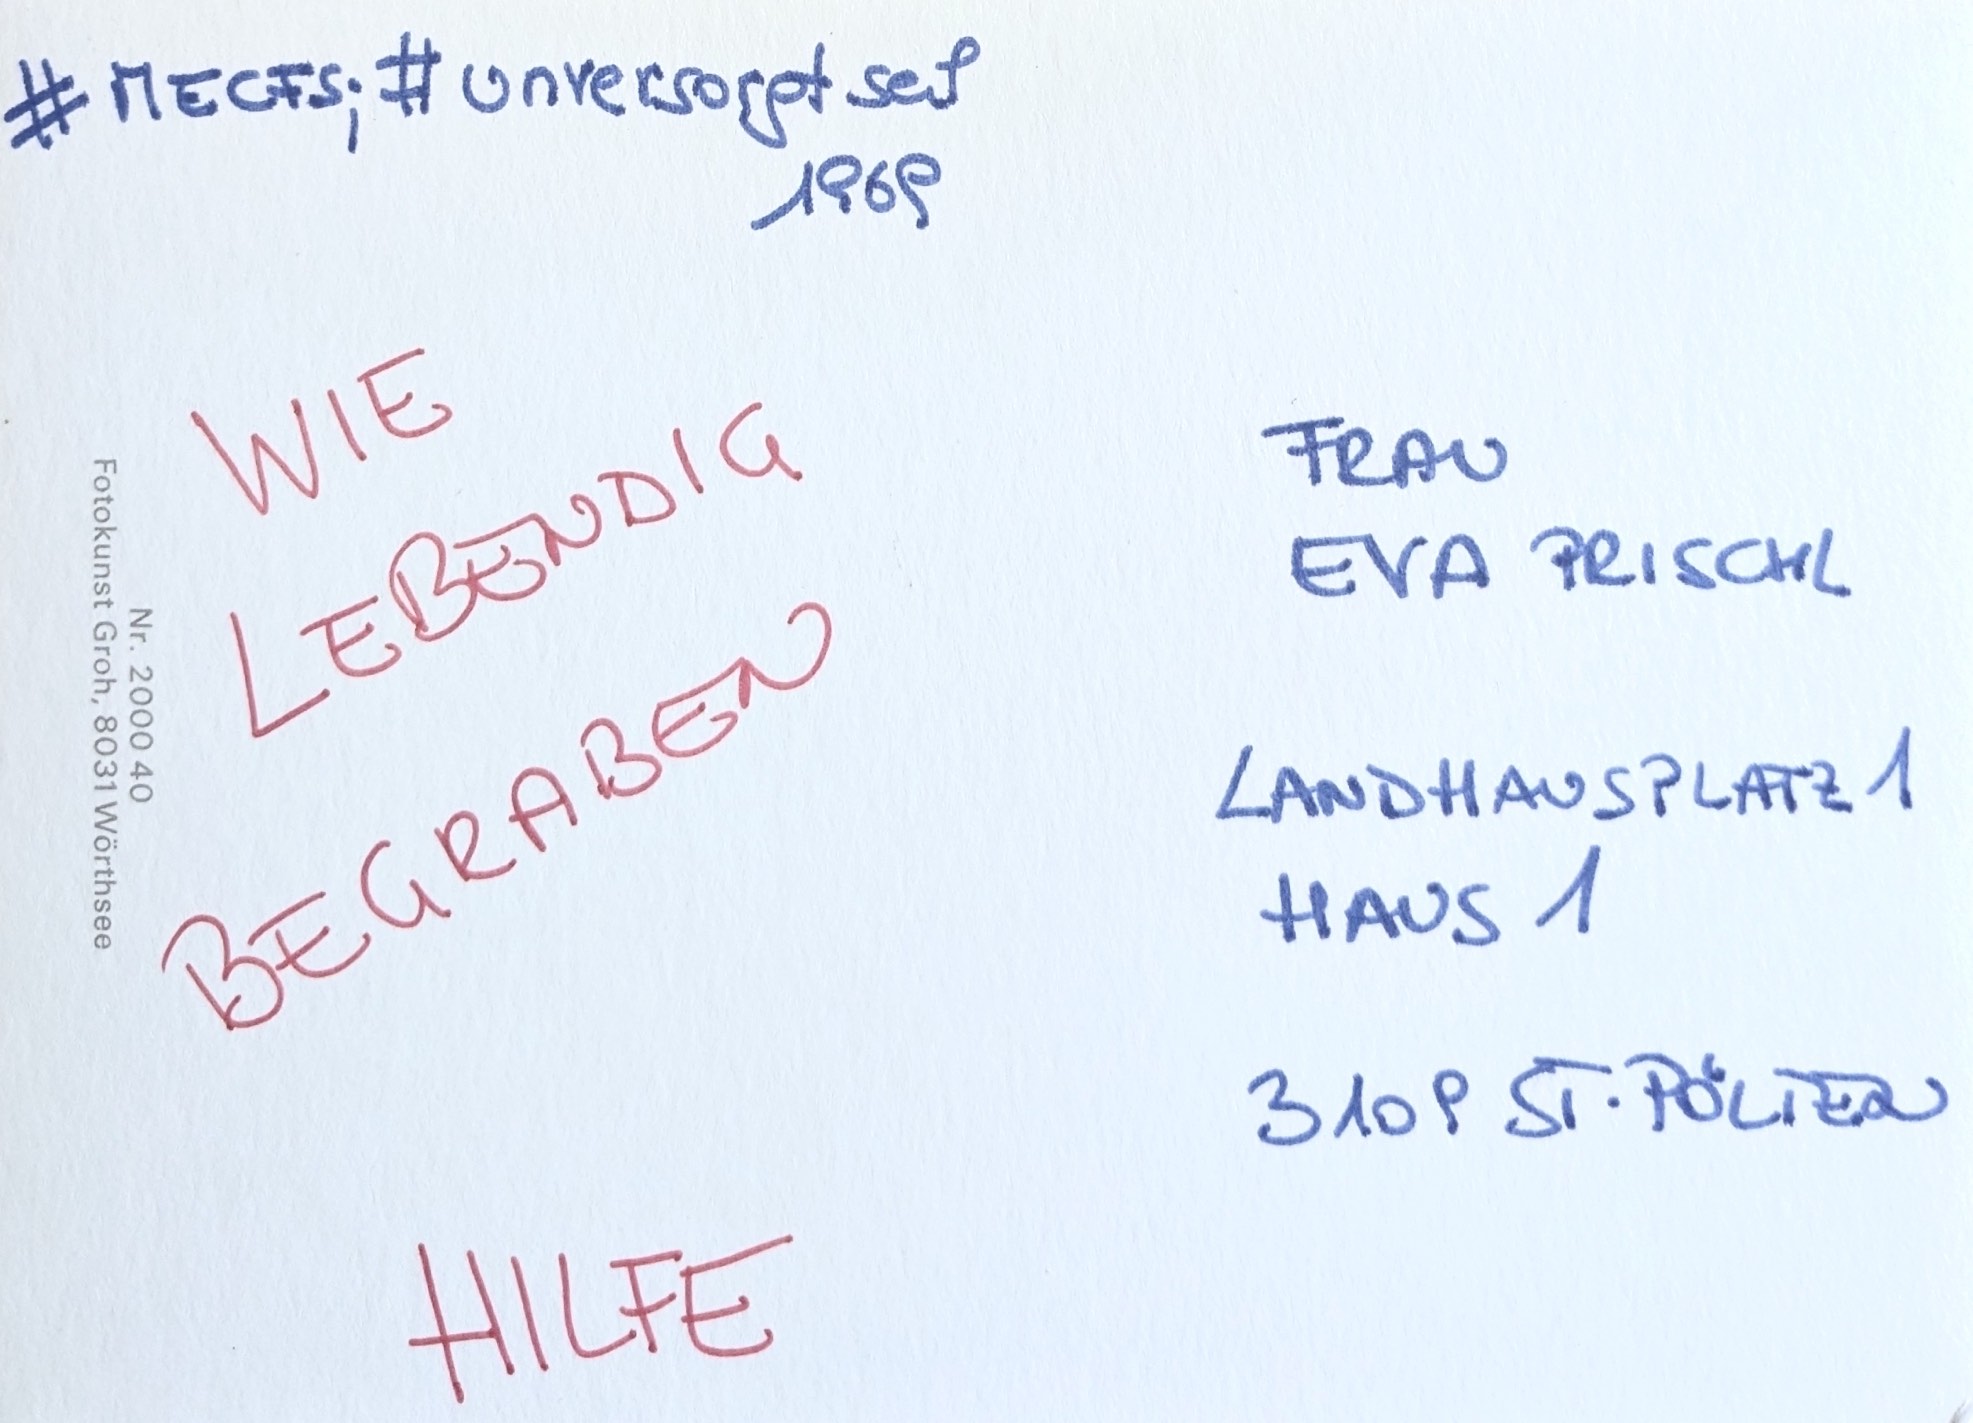 #MECFS; #unversorgt seit
1969
WIE
LEBENDIG
BEGRABEN
HILFE
Nr. 2000 40
Fotokunst Groh, 8031 Wörthsee
FRAU
EVA PRISCHL
LANDHAUSPLATZ 1
HAUS 1
3109 ST. PÖLTEN